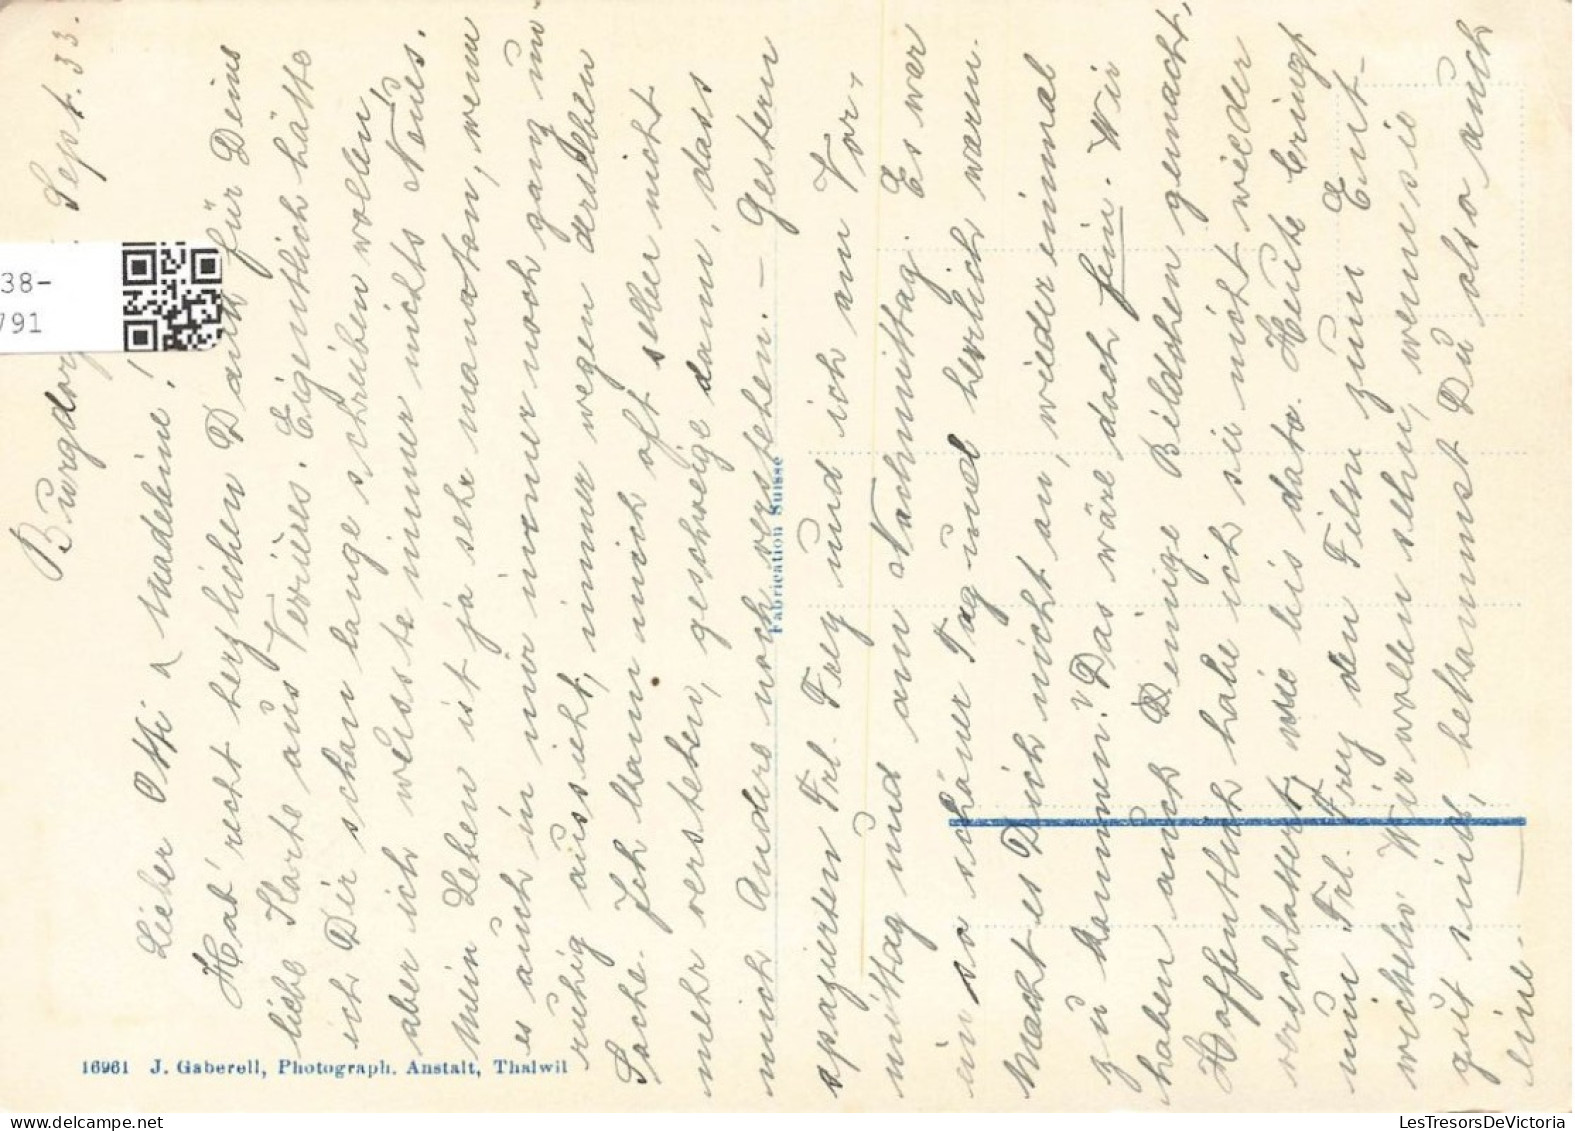 Burgdorf. Sept. 33.
Lieber Otti u. Madeleine!
Hab' recht herzlichen Dank für Deine
liebe Karte aus Verières. Eigentlich hätte
ich Dir schon lange schreiben wollen,
aber ich weisste immer nichts Neues.
Mein Leben ist ja sehr monoton, wenn
es auch in mir immer noch ganz un-
ruhig aussieht, immer wegen derselben
Sache. Ich kann mich oft selber nicht
mehr verstehen, geschweige dann, dass
mich Andere noch verstehen. – Gestern
spazierten Frl. Frey und ich am Vor-
mittag und am Nachmittag. Es war
ein so schöner Tag und herrlich warm.
Macht es Dich nicht an, wieder einmal
zu kommen? Das wäre doch fein. Wir
haben auch Deinige Bildchen gemacht,
Hoffentlich habe ich sie nicht wieder
verschlattert, wie bis dato. Heute bringt
nun Frl. Frey den Film zum Ent-
wickeln. Wir wollen sehn, wenn sie
gut sind, bekommst Du also auch
eine.
Fabrication Suisse
16961 J. Gaberell, Photograph. Anstalt, Thalwil
38-
791
LesTresorsDeVictoria.com